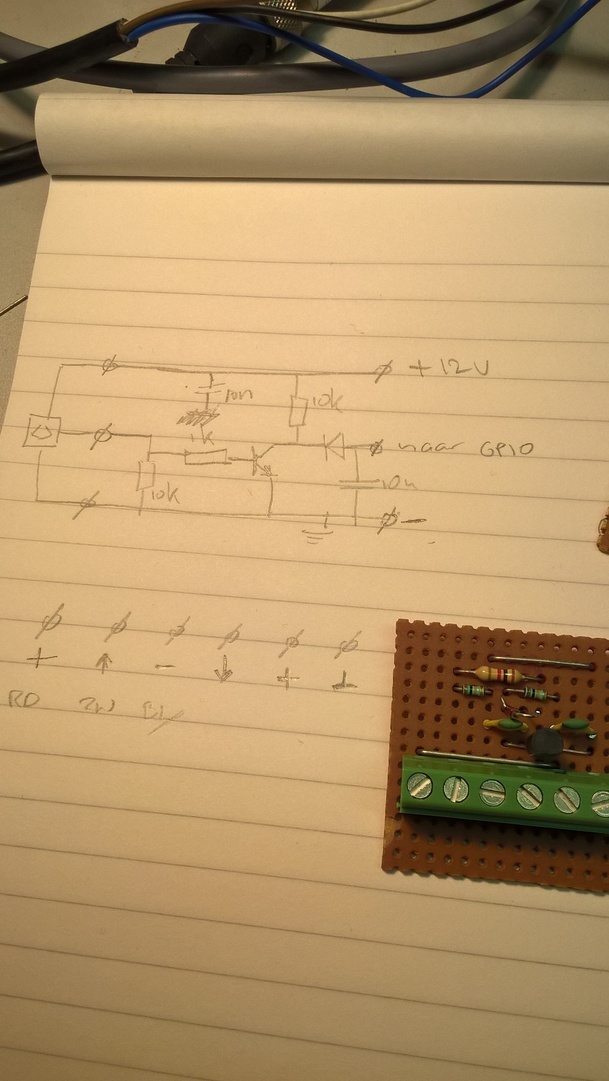 +12V
10n
10k
naar GPIO
1k
10k
10n
-
+ ↑ - ↓ + ⊥
RD ZW